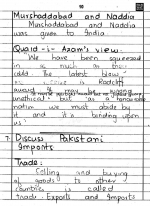 Murshadabad and Naddia
Murshadabad and Naddia
was given to India
Quaid-i-Azam's view.
We have been squeezed
in as much as
The latest blow
Radcliff
award
unethical but as a honourable
nation we must abide by
it and it's binding upon
us
7. Discuss Pakistani
Imports
Trade:
Selling and buying
of goods to other
countries is called
trade. Exports and Imports